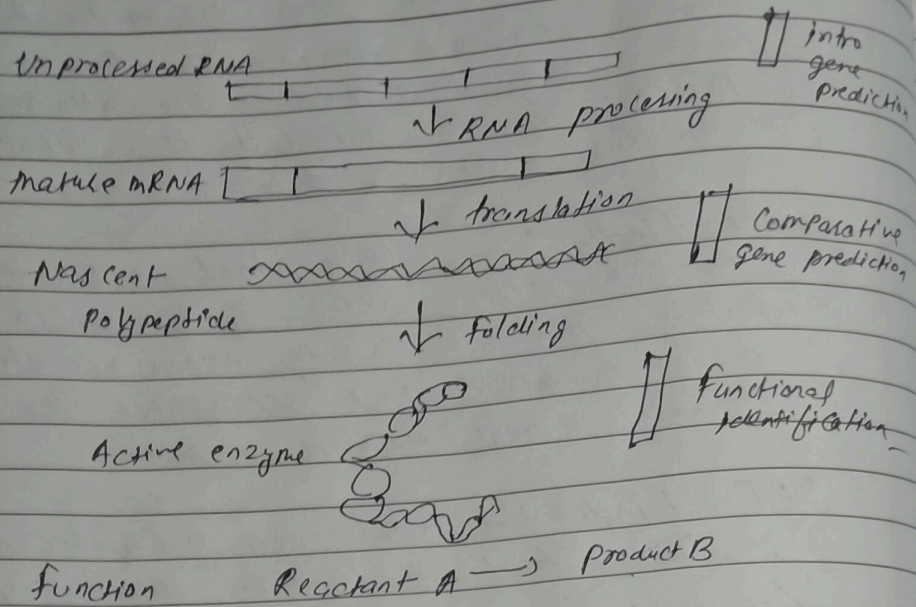 Unprocessed RNA
intro
gene
prediction
RNA processing
mature mRNA
translation
Comparative
gene prediction
Nascent
Polypeptide
folding
Functional
identification
Active enzyme
function Reactant A → Product B